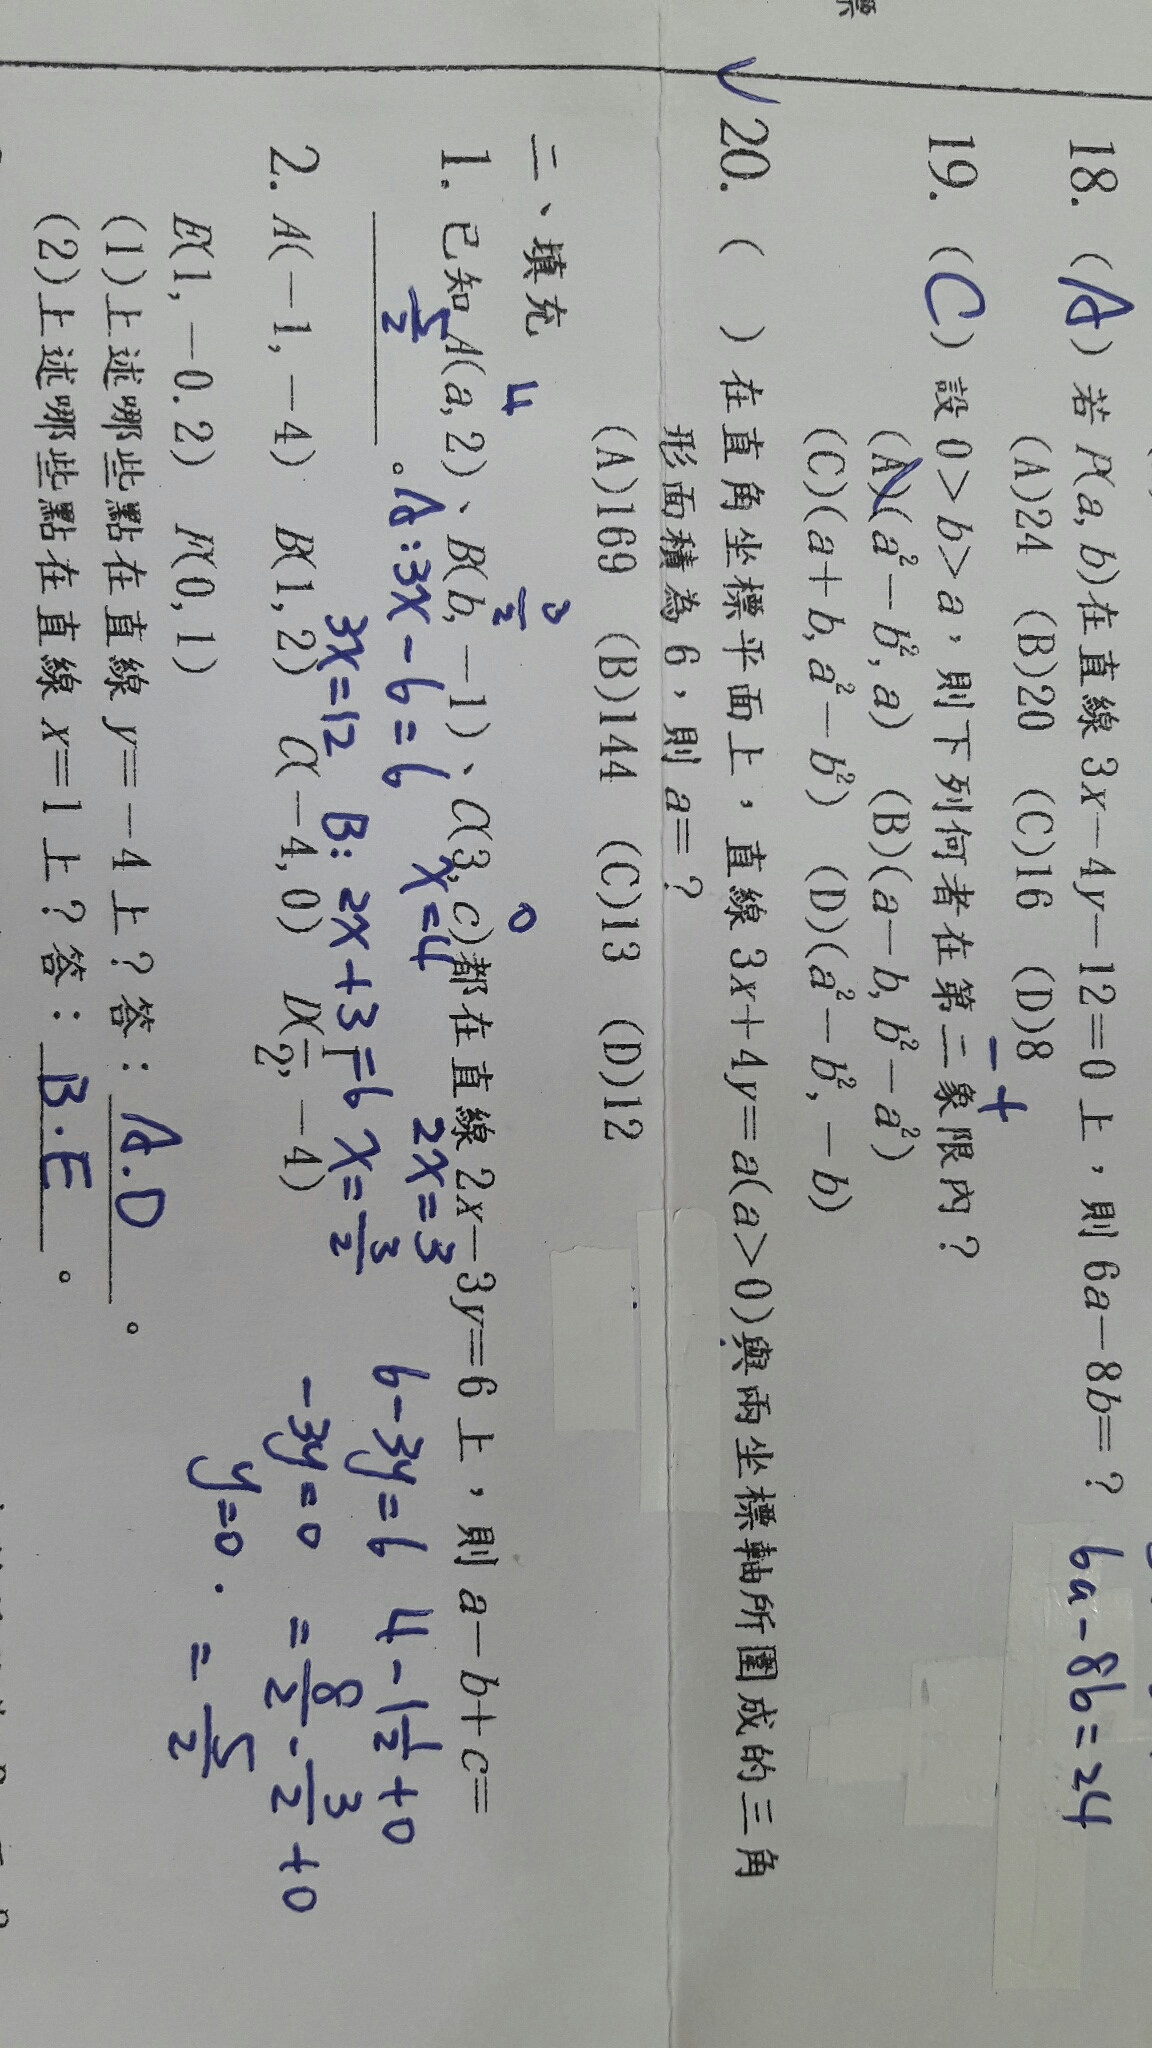 18. (A) 若 P(a, b)在直線 3x－4y－12＝0 上，則 6a－8b＝？ 6a-8b=24
(A)24 (B)20 (C)16 (D)8
- +
19. (C) 設 0＞b＞a，則下列何者在第二象限內？
(A)(a²－b², a) (B)(a－b, b²－a²)
(C)(a＋b, a²－b²) (D)(a²－b², －b)
20. ( ) 在直角坐標平面上，直線 3x＋4y＝a(a＞0)與兩坐標軸所圍成的三角
形面積為 6，則 a＝？
(A)169 (B)144 (C)13 (D)12
二、填充
4 3/2 0
1. 已知 A(a, 2)、B(b, －1)、C(3, c)都在直線 2x－3y＝6 上，則 a－b＋c＝
5/2 。
A:3x-6=6 x=4 2x=3 6-3y=6 4-1 1/2+0
3x=12 B: 2x+3=6 x=3/2 -3y=0 =8/2-3/2+0
y=0. =5/2
2. A(－1, －4) B(1, 2) C(－4, 0) D(1/2, －4)
E(1, －0.2) F(0, 1)
(1)上述哪些點在直線 y＝－4 上？答：A.D 。
(2)上述哪些點在直線 x＝1 上？答：B.E 。